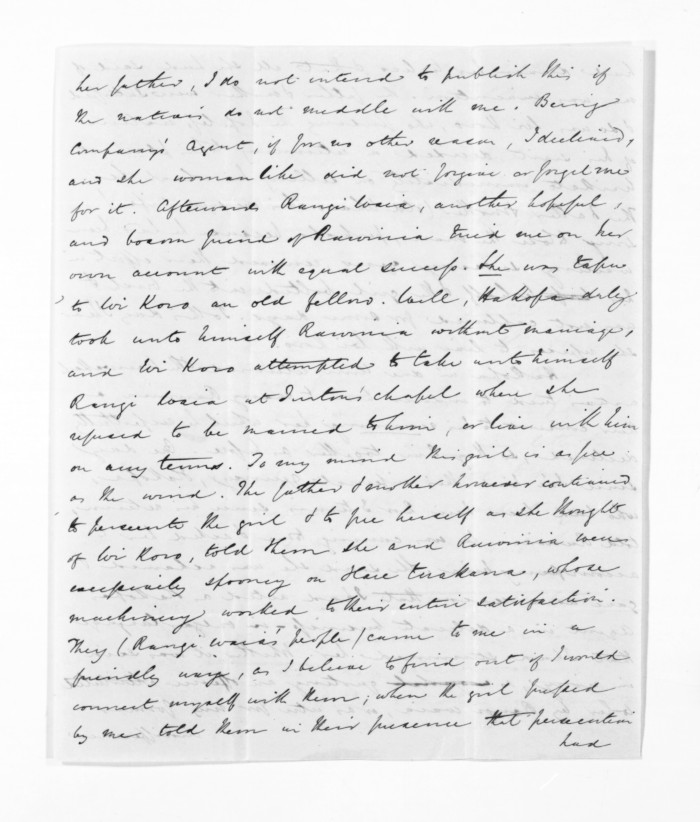 her father, I do not intend to publish this if
the natives do not meddle with me. Being
Company's Agent, if for no other reason, I declined,
and she woman like did not forgive or forget me
for it. Afterwards Rangi Waia, another hopeful,
and bosom friend of Rawinia tried me on her
own account with equal success. She was tapu
to Wi Koro an old fellow. Well, Hakopa duly
took unto himself Rawinia without marriage,
and Wi Koro attempted to take unto himself
Rangi waia at Turton's chapel where she
refused to be married to him, or live with him
on any terms. To my mind this girl is as free
as the wind. The father & mother however continued
to persecute the girl & to free herself as she thought
of Wi Koro, told them she and Rawinia were
excessively spooney on Hare, whose
machinery worked to their entire satisfaction.
They (Rangi waia's people) came to me in a
friendly way, as I believe to find out if I would
connect myself with them; when the girl pressed
by me told them in their presence that persecution
had